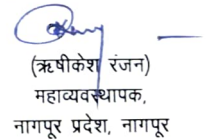 (ऋषीकेश रंजन)
महाव्यवस्थापक,
नागपूर प्रदेश, नागपूर